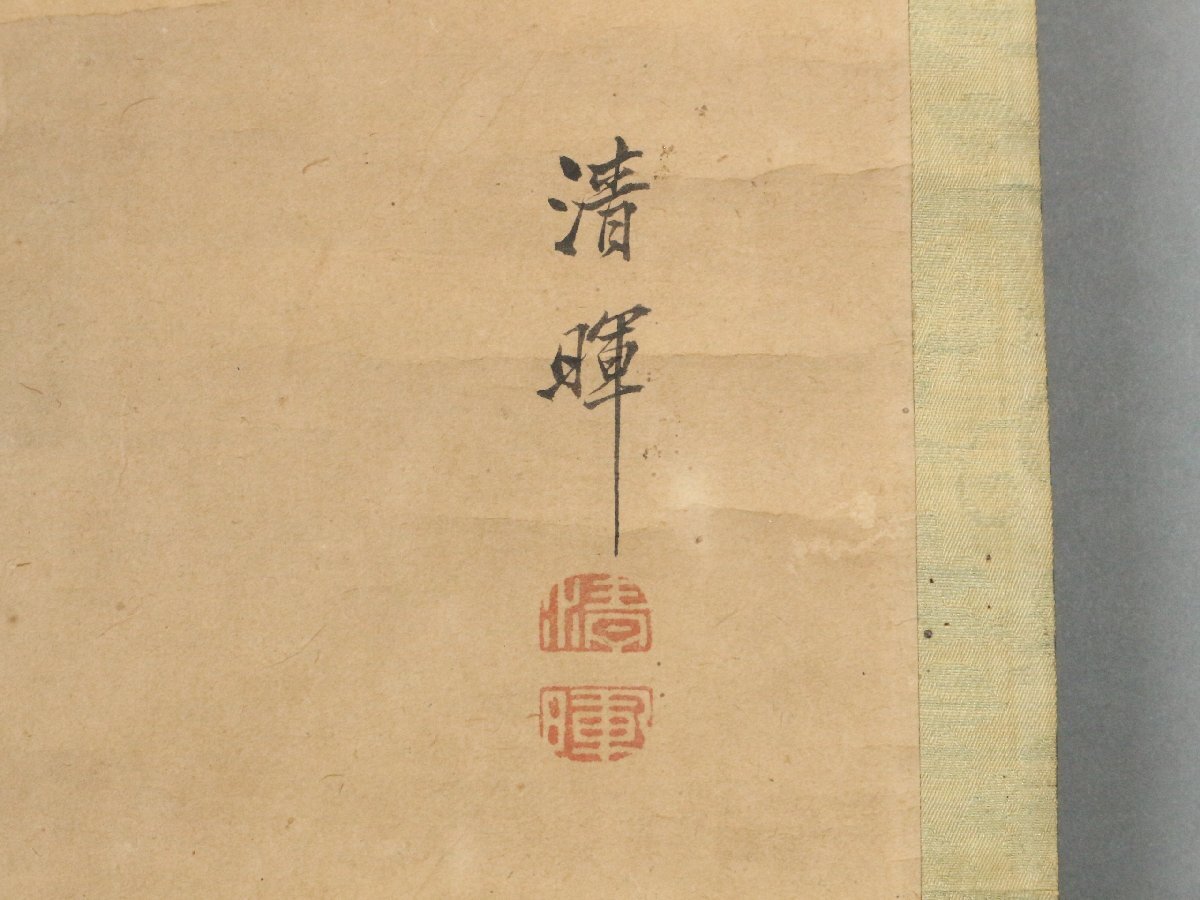 清暉
清
暉